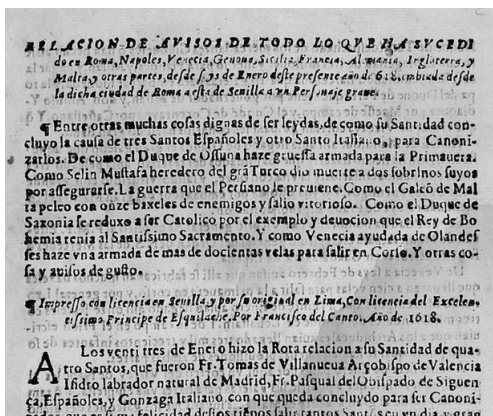 RELACION DE AVISOS DE TODO LO QVE HA SVCEDI
do en Roma, Napoles, Venecia, Genoua, Sicilia, Francia, Alemania, Inglaterra, y
Malta, y otras partes, desde 23 de Enero deste presente año de 618. embiada desde
la dicha ciudad de Roma a esta de Seuilla a vn Personaje graue.
¶ Entre otras muchas cosas dignas de ser leydas, de como su Santidad con-
cluyo la causa de tres Santos Españoles y otro Santo Italiano, para Canoni-
zarlos. De como el Duque de Ossuna haze gruessa armada para la Primauera.
Como Selin Mustafa heredero del grã Turco dio muerte a dos sobrinos suyos
por assegurarse. La guerra que el Persiano le preuiene. Como el Galeõ de Mal
ta peleo con onze baxeles de enemigos y salio vitorioso. Como el Duque de
Saxonia se reduxo a ser Catolico por el exemplo y deuocion que el Rey de Bo
hemia tenia al Santissimo Sacramento. Y como Venecia ayudada de Olandes
ses haze vna armada de mas de docientas velas para salir en Corso. Y otras co-
sa y auisos de gusto.
¶ Impresso con licencia en Seuilla y por su original en Lima, Con licencia del Excelen-
tissimo Principe de Esquilache, Por Francisco del Canto. Año de 1618.
A Los venti tres de Enero hizo la Rota relacion a su Santidad de qua-
tro Santos, que fueron Fr. Tomas de Villanueua Arçobispo de Valencia
Isidro labrador natural de Madrid, Fr. Pasqual del Obispado de Siguen
ça, Españoles, y Gonzaga Italiano, con que queda concluydo para ser Canoni-